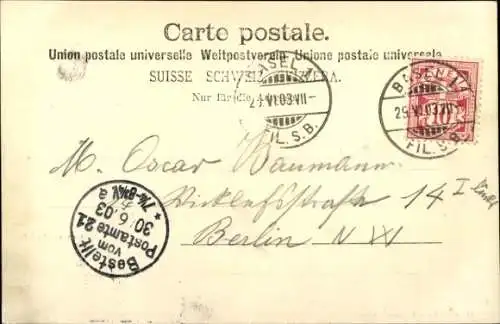 Carte postale.
Union postale universelle Weltpostverein Unione postale universale
SUISSE SCHWEIZ SVIZZERA.
Nur für die Adresse
BASEL 1
29.VI.03.VII-
FIL. S.B.
BASEL 1
29.VI.03.VII
FIL. S.B.
10
M. Oscar Baumann
Wicklefstraße 14 I
Berlin N W
Bestellt
vom
Postamte 21
30/6.03